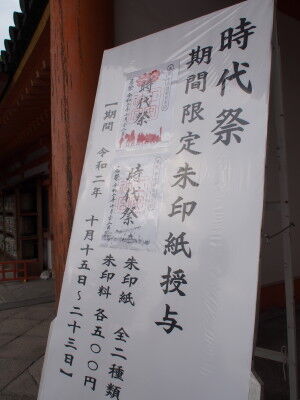 時代祭
期間限定朱印紙授与
時代祭
時代祭
朱印紙 全二種類
朱印料 各五〇〇円
【期間 令和二年 十月十五日～二十三日】